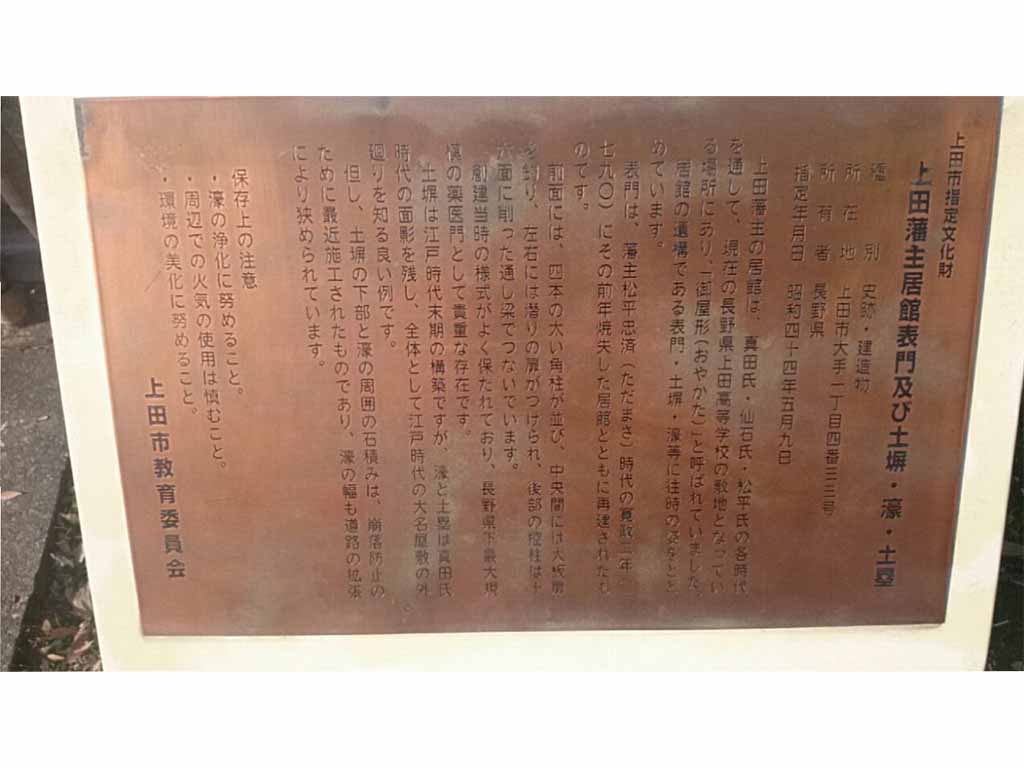 上田市指定文化財
上田藩主居館表門及び土塀・濠・土塁
種別 史跡・建造物
所在地 上田市大手一丁目四番三二号
所有者 長野県
指定年月日 昭和四十四年五月九日
上田藩主の居館は、真田氏・仙石氏・松平氏の各時代
を通して、現在の長野県上田高等学校の敷地となってい
る場所にあり、「御屋形(おやかた)」と呼ばれていました。
居館の遺構である表門・土塀・濠等に往時の姿をとど
めています。
表門は、藩主松平忠済(ただまさ)時代の寛政二年(一
七九〇)にその前年焼失した居館とともに再建されたも
のです。
前面には、四本の太い角柱が並び、中央間には大板扉
を釣り、左右には潜りの扉がつけられ、後部の控柱は十
六面に削った通し梁でつないでいます。
創建当時の様式がよく保たれており、長野県下最大規
模の薬医門として貴重な存在です。
土塀は江戸時代末期の構築ですが、濠と土塁は真田氏
時代の面影を残し、全体として江戸時代の大名屋敷の外
廻りを知る良い例です。
但し、土塀の下部と濠の周囲の石積みは、崩落防止の
ために最近施工されたものであり、濠の幅も道路の拡張
により狭められています。
保存上の注意
・濠の浄化に努めること。
・周辺での火気の使用は慎むこと。
・環境の美化に努めること。
上田市教育委員会